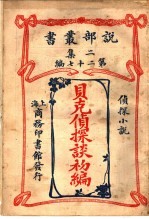 說部叢書
二集
第二十七編
偵探小説
貝克偵探談初編
上海商務印書館發行